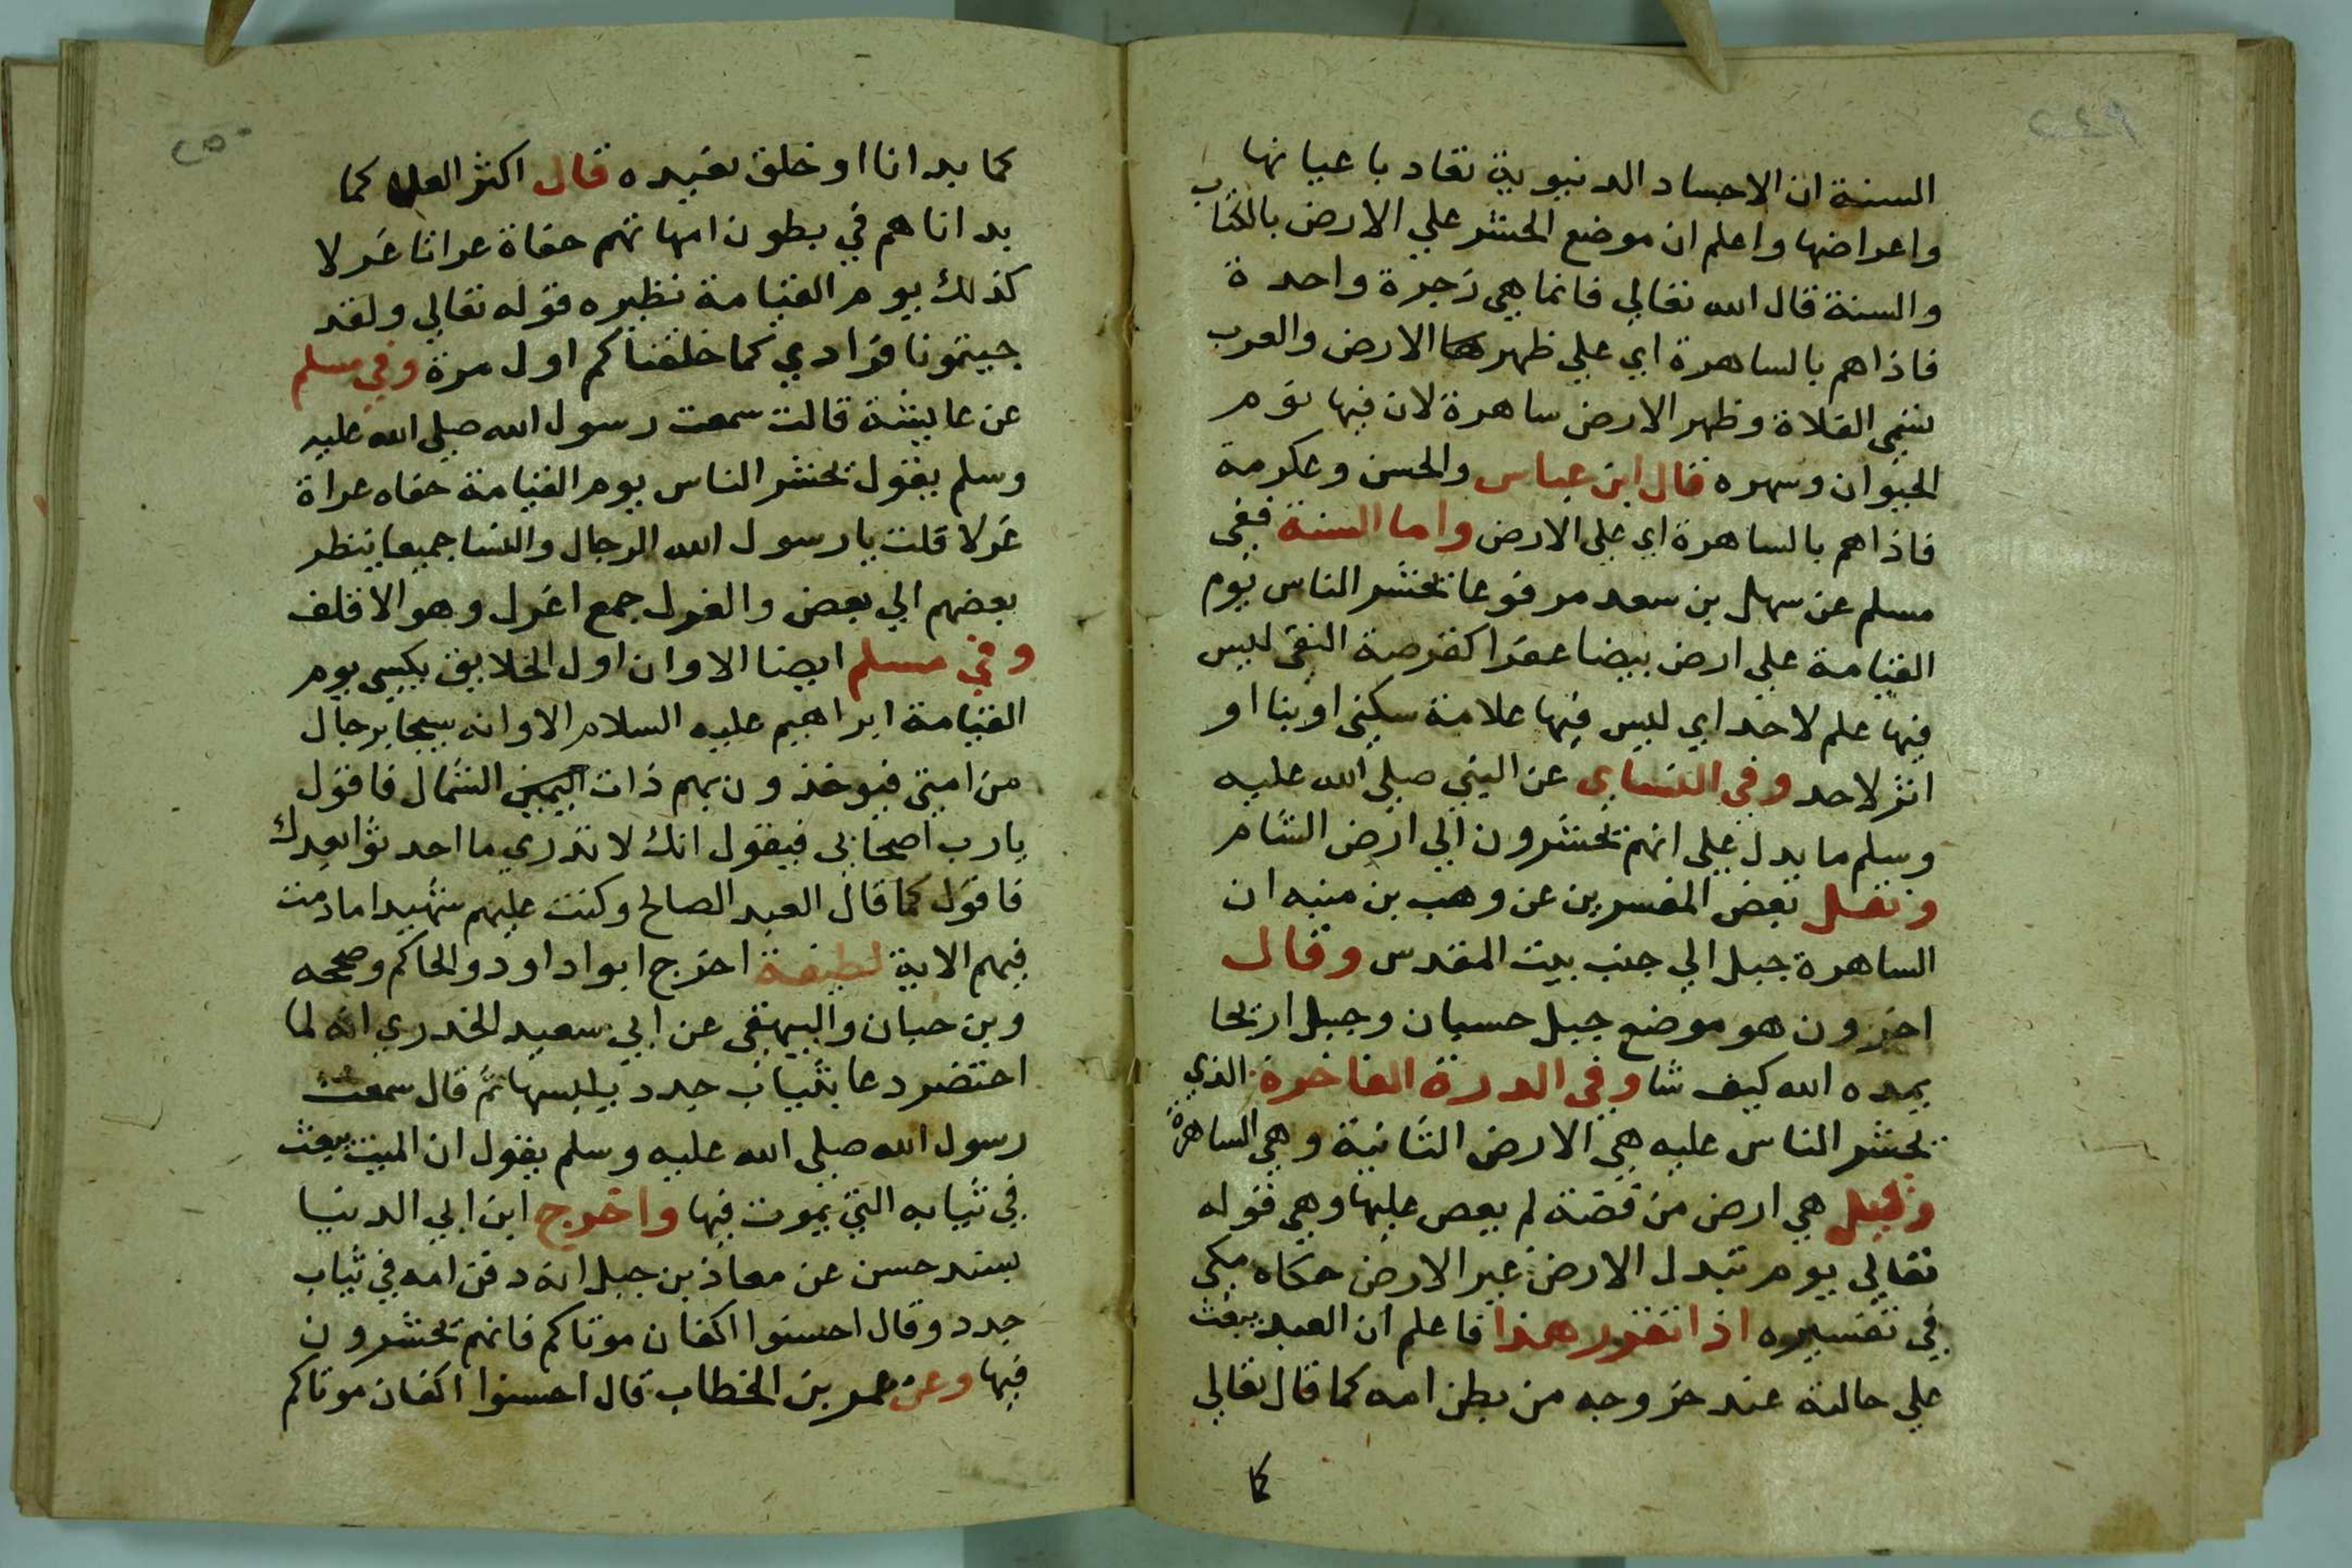 ٢٤٩
السنة ان الاجساد الدنيوية تعاد باعيانها
واعراضها واعلم ان موضع الحشر علي الارض بالكتاب
والسنة قال الله تعالي فانما هي زجرة واحدة
فاذاهم بالساهرة اي علي ظهر الارض والعرب
تسمي الفلاة وظهر الارض ساهرة لان فيها نوم
الحيوان وسهره قال ابن عباس والحسن وعكرمة
فاذاهم بالساهرة اي علي الارض واما السنة ففي
مسلم عن سهل بن سعد مرفوعا تحشر الناس يوم
القيامة علي ارض بيضا عفرا كقرصة النقي ليس
فيها علم لاحد اي ليس فيها علامة سكني او بنا او
اثر لاحد وفي النساي عن النبي صلي الله عليه
وسلم ما يدل علي انهم تحشرون الي ارض الشام
ونقل بعض المفسرين عن وهب بن منبه ان
الساهرة جبل الي جنب بيت المقدس وقال
اخرون هو موضع جبل حسبان وجبل اريحا
يمده الله كيف شا وفي الدرة الفاخرة الذي
تحشر الناس عليه هي الارض الثانية وهي الساهرة
وقيل هي ارض من فضة لم يعص عليها وهي قوله
تعالي يوم تبدل الارض غير الارض حكاه مكي
في تفسيره اذا تقرر هذا فاعلم ان العبد يبعث
علي حالته عند خروجه من بطن امه كما قال تعالي
كما
٢٥٠
كما بدانا اول خلق نعيده قال اكثر العلما كما
بداناهم في بطون امهاتهم حفاة عراتا غرلا
كذلك يوم القيامة نظيره قوله تعالي ولقد
جيتمونا فرادي كما خلقناكم اول مرة وفي مسلم
عن عايشة قالت سمعت رسول الله صلي الله عليه
وسلم يقول تحشر الناس يوم القيامة حفاه عراة
غرلا قلت يا رسول الله الرجال والنسا جميعا ينظر
بعضهم الي بعض والغرل جمع اغرل وهو الاقلف
وفي مسلم ايضا الا وان اول الخلايق يكسي يوم
القيامة ابراهيم عليه السلام الا وانه سيجا برجال
من امتي فيوخذون بهم ذات الشمال فاقول
يارب اصحابي فيقول انك لا تدري ما احدثوا بعدك
فاقول كما قال العبد الصالح وكنت عليهم شهيدا مادمت
فيهم الاية لطيفة اخرج ابوا داود والحاكم وصححه
وبن حبان والبيهقي عن ابي سعيد الخدري انه لما
احتضر دعا بثياب جدد يلبسها ثم قال سمعت
رسول الله صلي الله عليه وسلم يقول ان الميت يبعث
في ثيابه التي يموت فيها واخرج ابن ابي الدنيا
بسند حسن عن معاذ بن جبل انه دفن امه في ثياب
جدد وقال احسنوا اكفان موتاكم فانهم تحشرون
فيها وعن عمر بن الخطاب قال احسنوا اكفان موتاكم